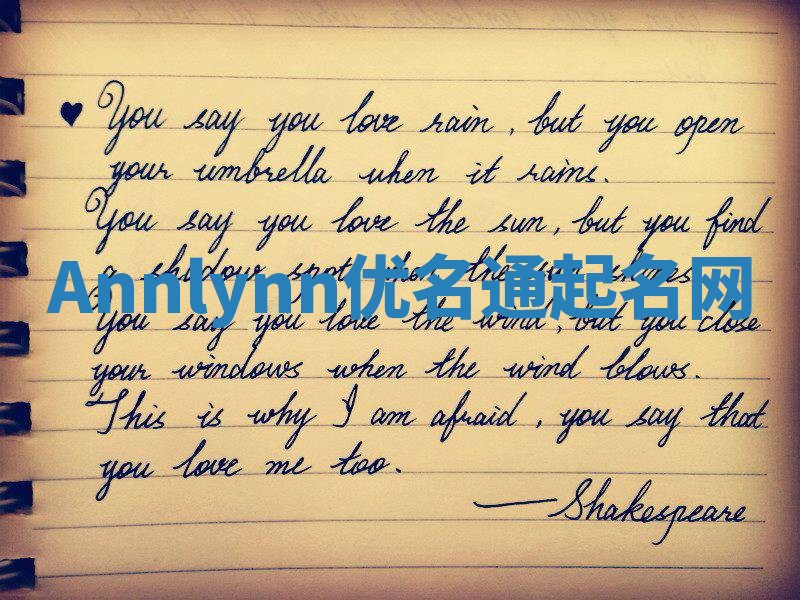 ♥ You say you love rain, but you open
your umbrella when it rains.
You say you love the sun, but you find
a shadow spot when the sun shines
Annlynn优名通起名网
You say you love the wind, but you close
your windows when the wind blows.
This is why I am afraid, you say that
you love me too.
—Shakespeare